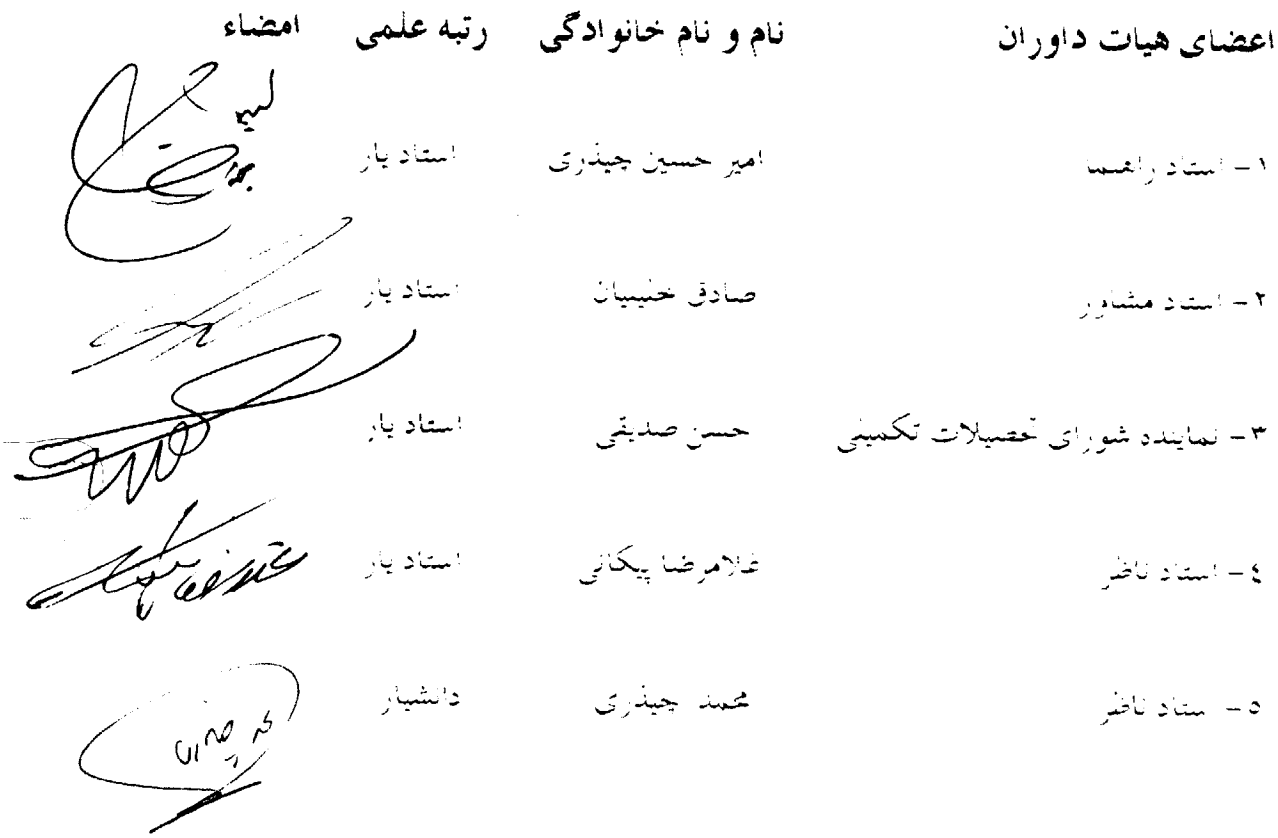 اعضای هیات داوران نام و نام خانوادگی رتبه علمی امضاء
۱- استاد راهنما امیر حسین چیذری استاد یار
۲- استاد مشاور صادق خلیلیان استاد یار
۳- نماینده شورای تحصیلات تکمیلی حسن صدیقی استاد یار
٤- استاد ناظر غلامرضا پیکانی استاد یار
۵- استاد ناظر محمد چیذری دانشیار